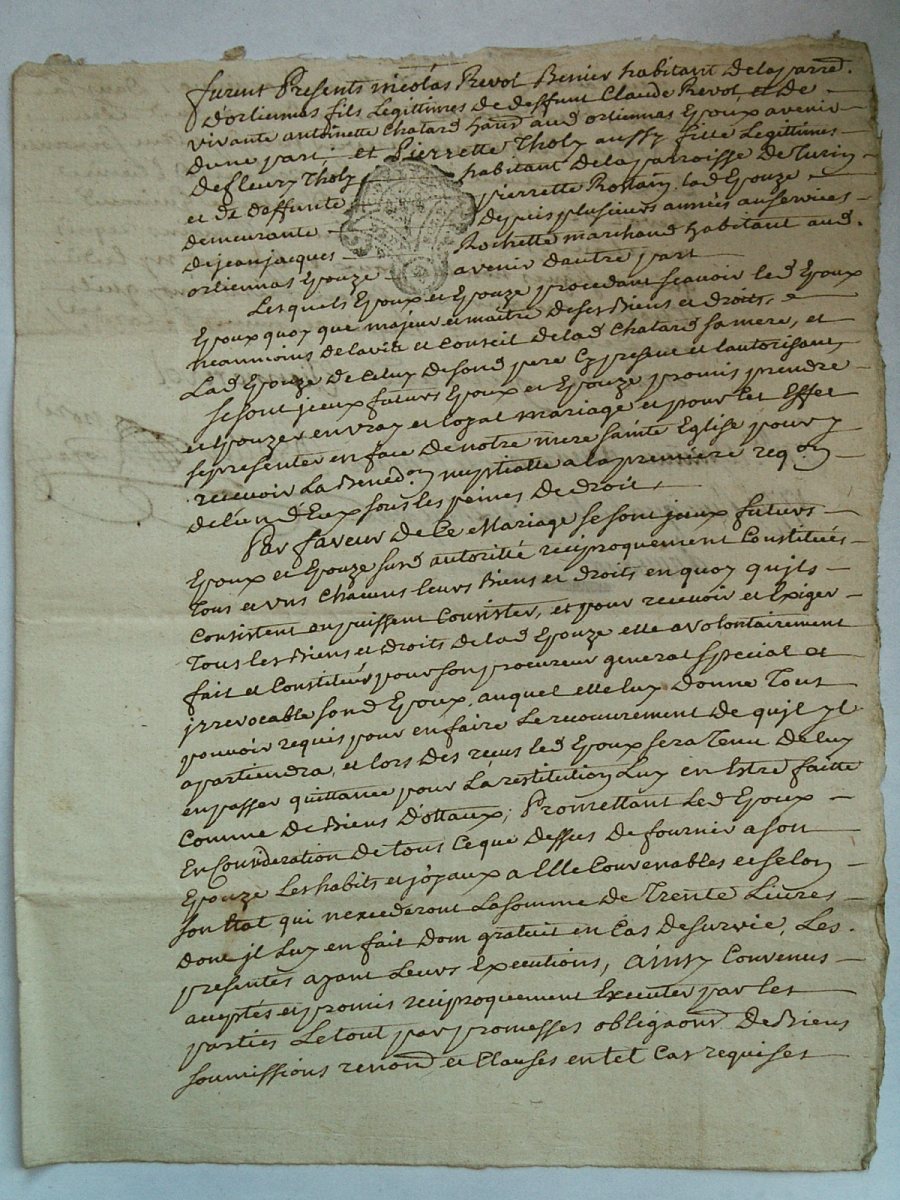 furent Presents nicolas Revol Benier habitant delaparred.
d'orliennas fils Legittimes de deffunt Claude Revol et de
vivante antoinette Chatard hand aud orliennas Epoux avenir
dune part, et Pierrette Tholy aussy fille Legittimes
defleury Tholy habitant delaparroisse de Turin
et de deffunte pierrette Rossain, lad Epouze
demeurante depuis plusieurs années auservices
dejeanjacques Rochette marchand habitant aud.
orliennas Epouze avenir dautre part
Lesquels Epoux et Epouze procedant scavoir led Epoux
Epoux quoy que majeur et maitre deses Biens et droits,
neanmoins delavis et Conseil delad Chatard samere, et
Lad Epouze de Celuy desond pere Cy present et lautorisant,
sesont jceux futurs Epoux et Epouze promis prendre
et Epouzer en vray et loyal mariage et pour Cet Effet
sepresenter en face de notre mere sainte Eglise pour y
recevoir La Bened.on nuptialle alapremiere req.on
delún dEux sous les peines de droit,
Par faveur de Ce Mariage sesont jceux futurs
Epoux et Epouze susd autoritté reciproquement Constitués
Tous et uns Chacuns leurs Biens et droits en quoy qujls
Consistent en puissent Consister, et pour recevoir et Exiger
Tous les Biens et droits delad Epouze elle avolontairement
fait et Constitué pour son procureur general special et
jrrevocable sond Epoux, auquel elle luy donne Tout
pouvoir requis pour en faire Le recouvrement de qujl yl
apartiendra, et lors des recus led Epoux sera Tenu deluy
en passer quittance pour La restitution Luy en Estre faitte
Comme de Biens d'ottaux, Promettant Led Epoux
En Considération de tous Ceque dessus de fournir ason
Epouze Les habits et joyaux a Elle Convenables et selon
son Etat qui nexcederont Lasomme de Trente Livres
donc jl Luy en fait dom gratuit en Cas desurvie, Les.
presentes ayant Leurs Executions, ainsy Convenus
acceptés et promis reciproquement Executer par les
parties Letout par promesses obligaons de Biens
soumissions renond et Clauses en tel Cas requises